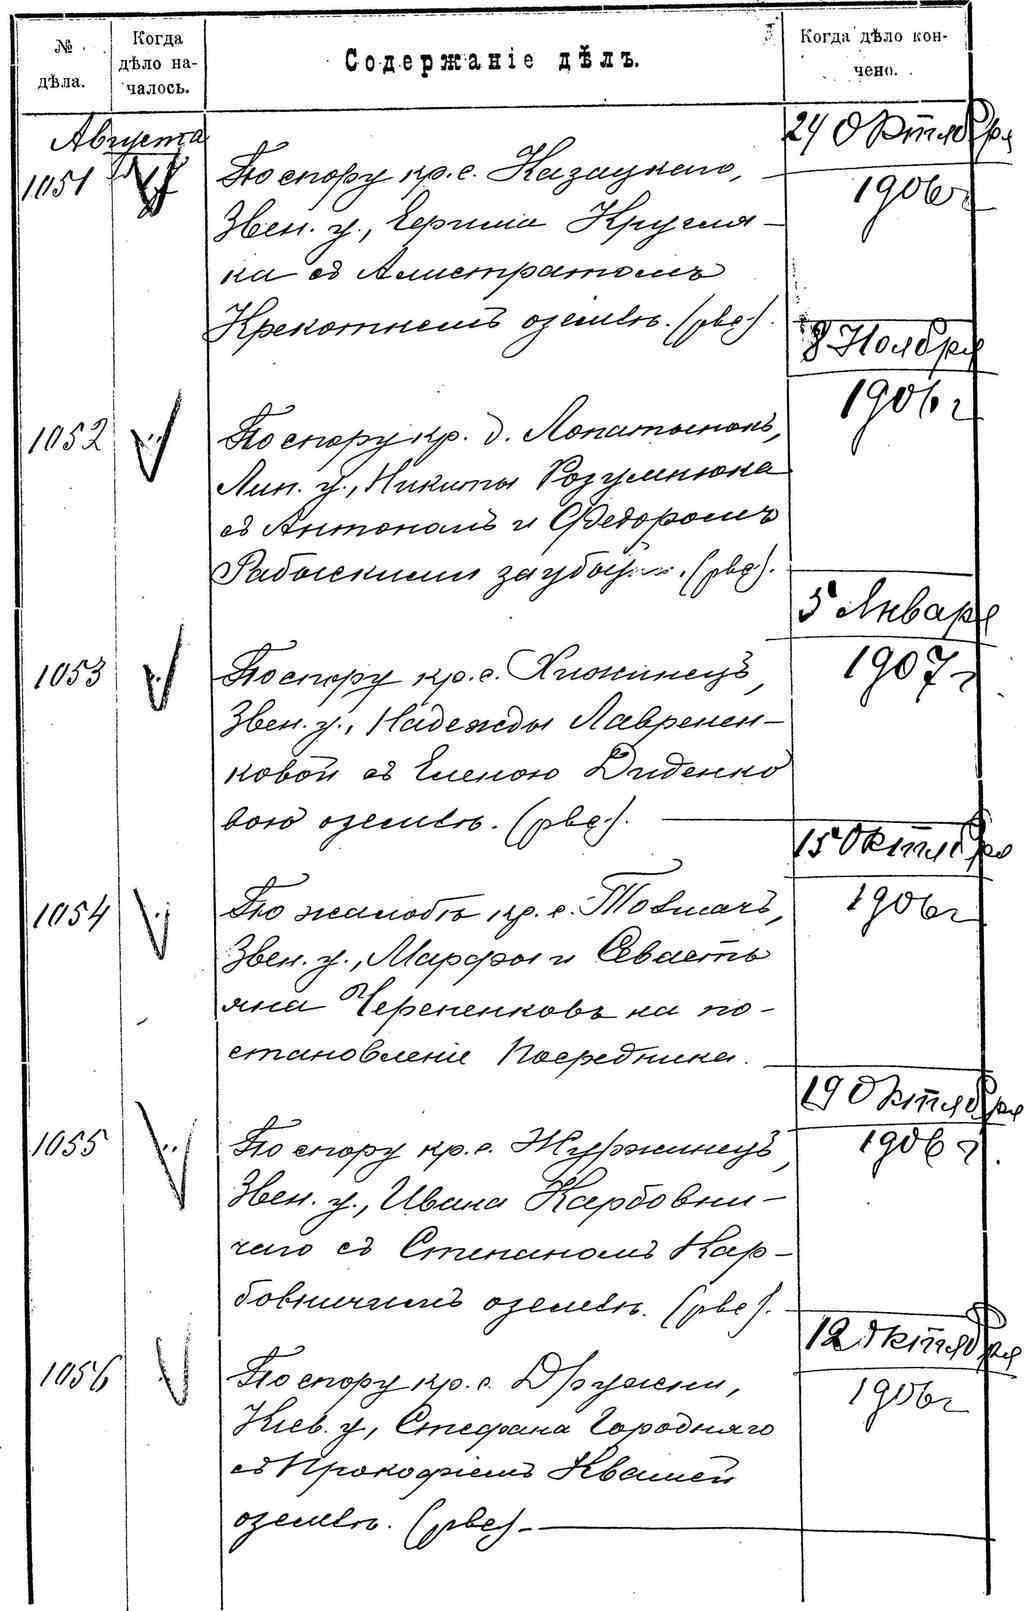 № дѣла.
Когда дѣло на-
чалось.
Содержаніе дѣлъ.
Когда дѣло кон-
чено.
Августа
1051
По спору кр. с. Казацкаго,
Звен. у., Ефима Кругля-
ка съ Алистратомъ
Крекотнемъ о землѣ. (рвд).
24 Октября
1906 г
1052
По спору кр. д.
Лип. у., Никиты Розумнюка
съ Антономъ и Федоромъ
(рвд).
8 Ноября
1906 г
1053
По спору кр. с. Хижинецъ,
Звен. у., Надежды Лавренен-
ковой съ Еленою Диденко
вою о землѣ. (рвд).
5 Января
1907 г
1054
По жалобѣ кр. с. Товмачъ,
Звен. у., Марфы и Севасть
яна Черененковъ на по-
становленіе Посредника.
15 Октября
1906 г
1055
По спору кр. с. Журжинецъ,
Звен. у., Ивана Карбовни-
чаго съ Степаномъ Кар-
бовничимъ о землѣ. (рвд).
19 Октября
1906 г.
1056
По спору кр. с.
Кіев. у., Стефана Городняго
съ Прокофіемъ Квашей
о землѣ. (рвд).
12 Октября
1906 г